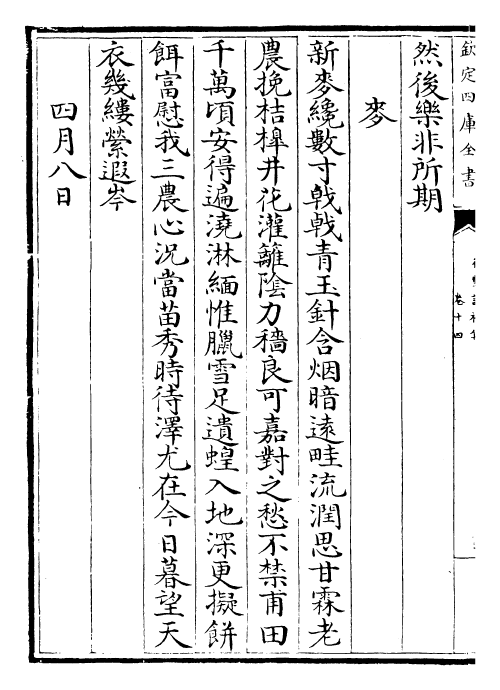 欽定四庫全書
卷十四
然後樂非所期
麥
新麥纔數寸戟戟青玉針含烟暗遠畦流潤思甘霖老
農挽桔槹井花灌籬陰力穡良可嘉對之愁不禁甫田
千萬頃安得遍澆淋緬惟臘雪足遺蝗入地深更擬餅
餌富慰我三農心況當苗秀時待澤尤在今日暮望天
衣幾縷縈遐岑
四月八日